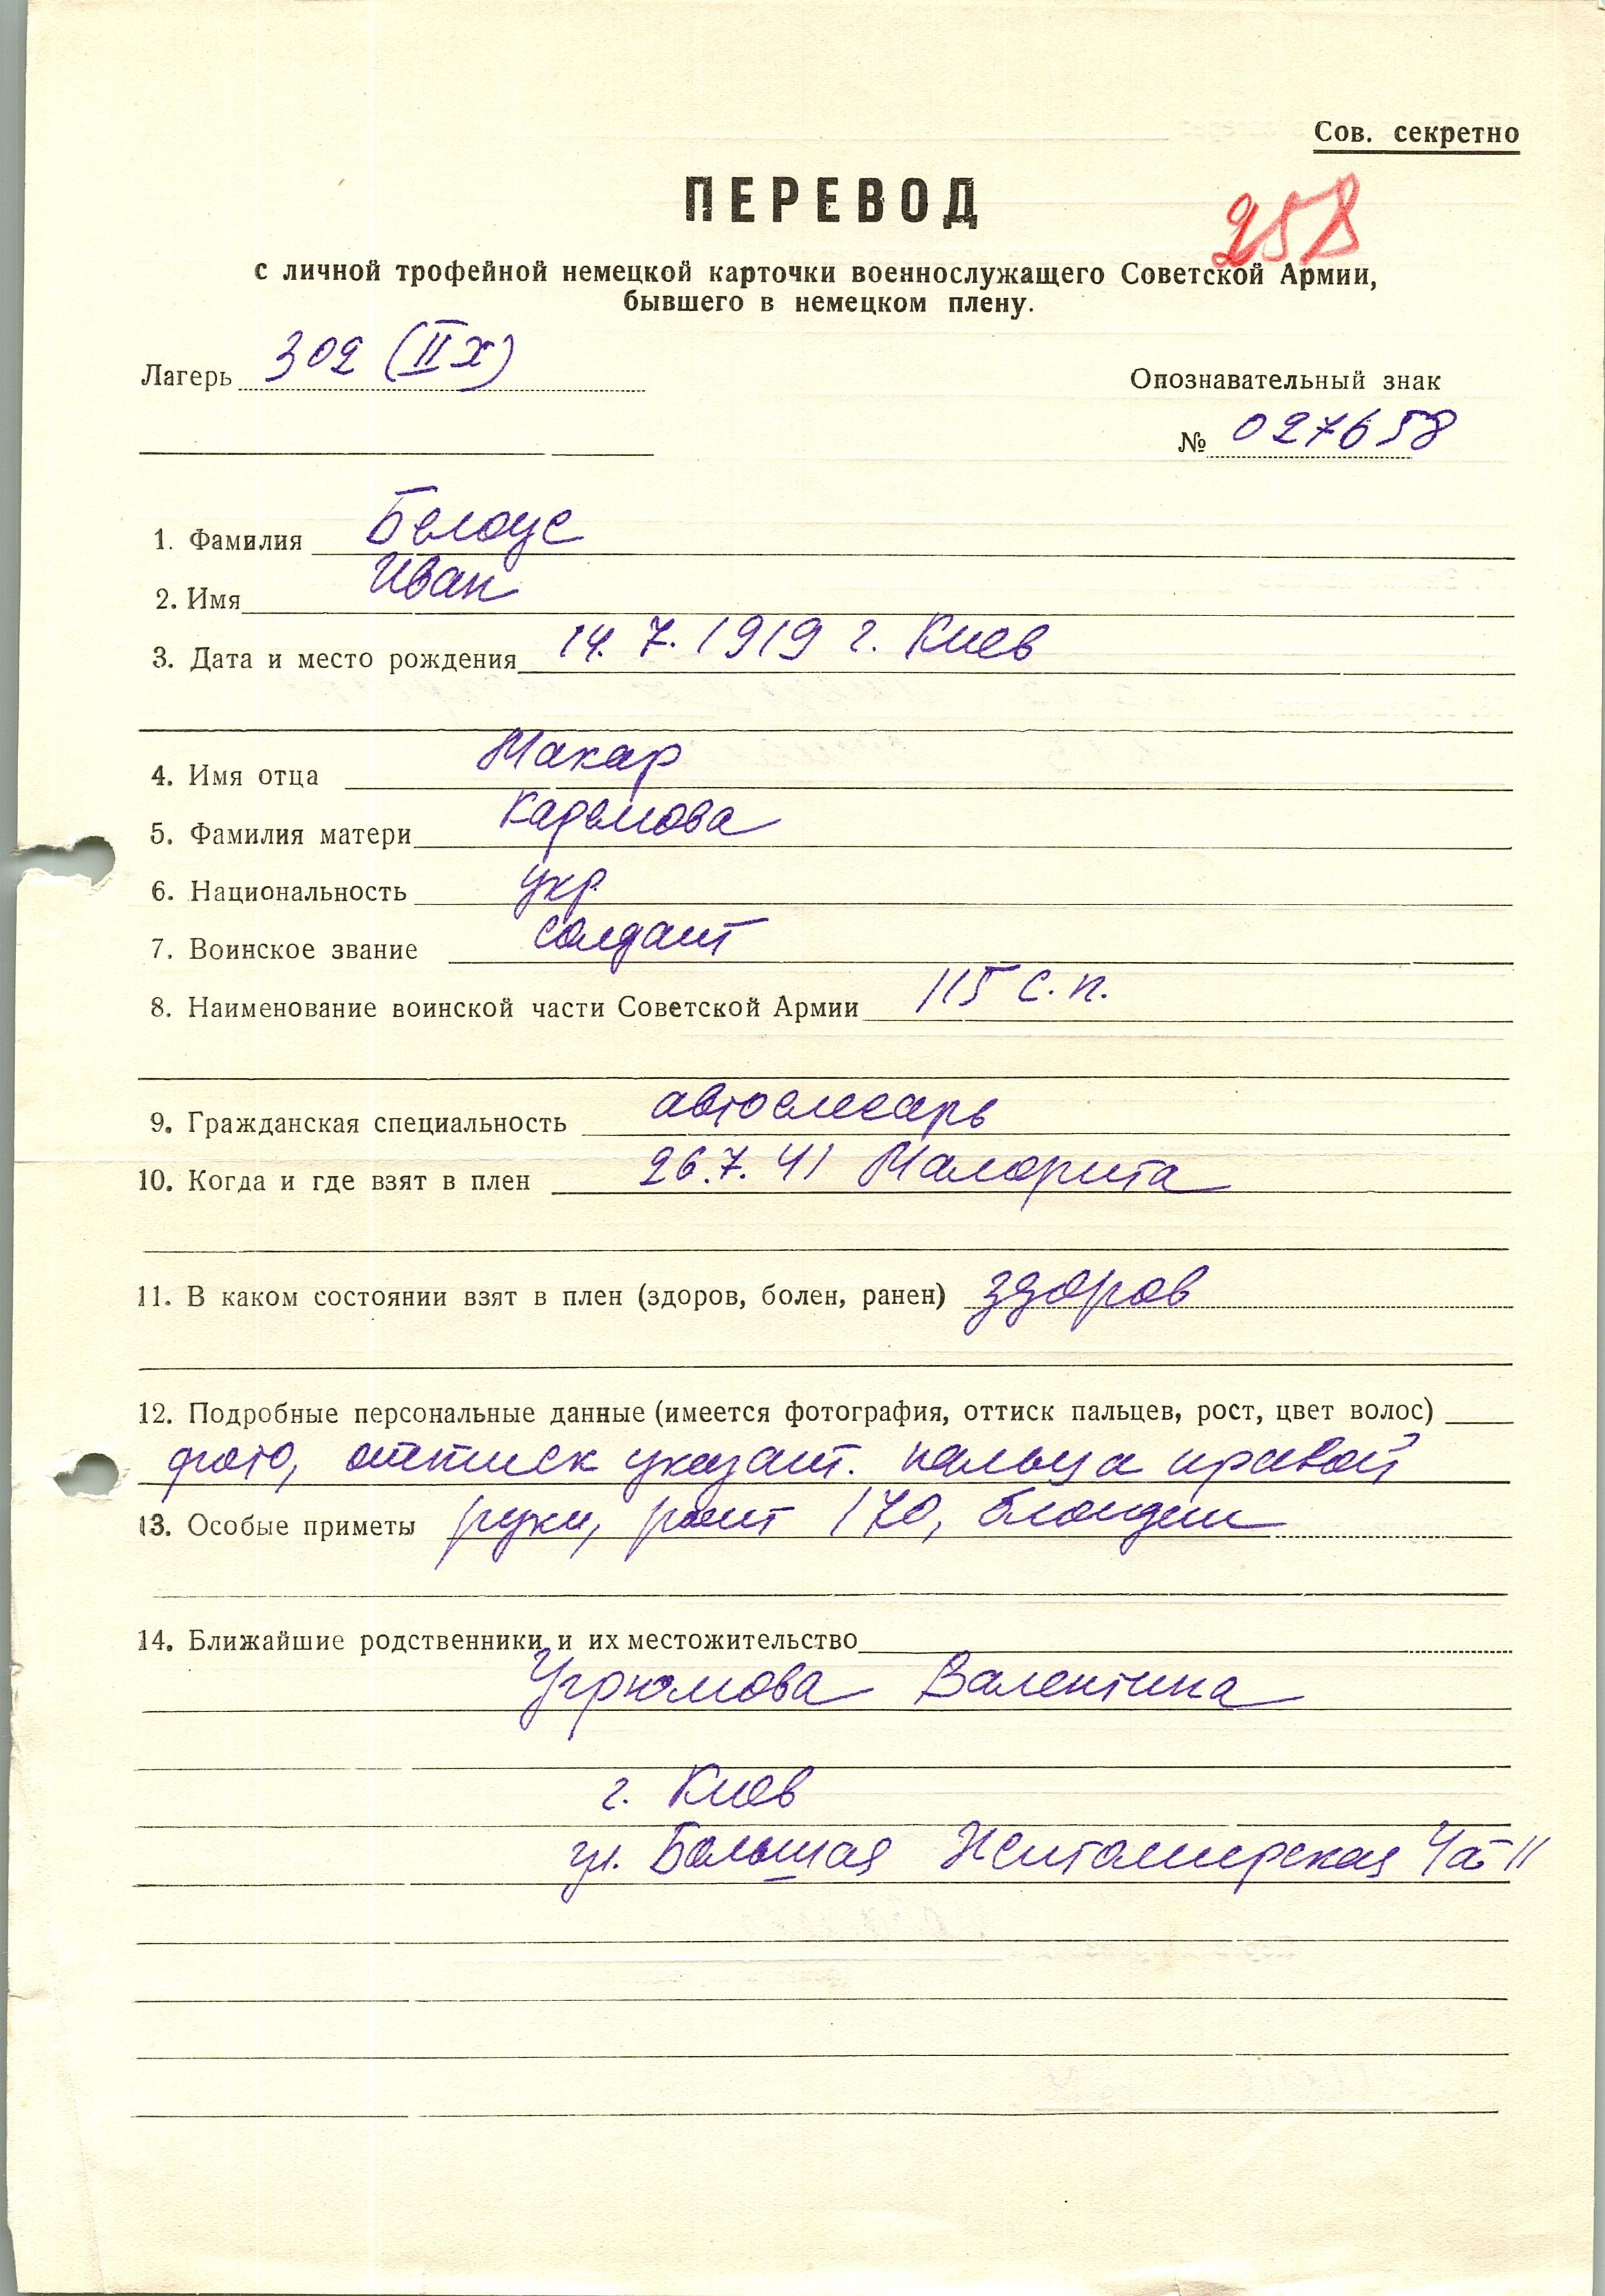 Сов. секретно
ПЕРЕВОД
258
с личной трофейной немецкой карточки военнослужащего Советской Армии,
бывшего в немецком плену.
Лагерь 302 (II X)
Опознавательный знак
№ 027658
1. Фамилия Белоус
2. Имя Иван
3. Дата и место рождения 14.7.1919 г. Киев
4. Имя отца Макар
5. Фамилия матери
6. Национальность укр
7. Воинское звание солдат
8. Наименование воинской части Советской Армии 115 с.п.
9. Гражданская специальность автослесарь
10. Когда и где взят в плен 26.7.41 Малорита
11. В каком состоянии взят в плен (здоров, болен, ранен) здоров
12. Подробные персональные данные (имеется фотография, оттиск пальцев, рост, цвет волос)
фото, оттиск указат. пальца правой
13. Особые приметы руки, рост 170, блондин
14. Ближайшие родственники и их местожительство
Угрюмова Валентина
г. Киев
ул. Большая Житомирская